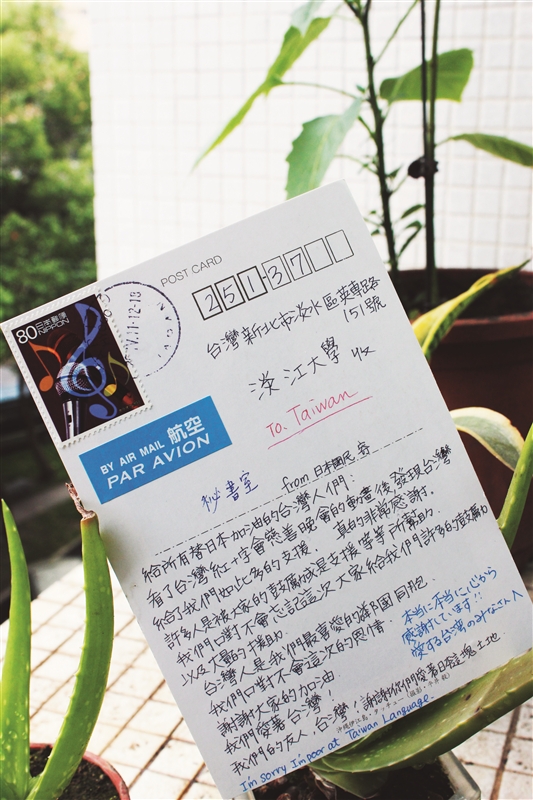 POST CARD
251-37
80 日本郵便
NIPPON
台灣新北市淡水區英專路
151號
淡江大學 收
To. Taiwan
BY AIR MAIL 航空
PAR AVION
秘書室
from 日本國民 寄
給所有替日本加油的台灣人們:
看了台灣紅十字會慈善晚會的動畫後發現台灣
給了我們如此多的支援. 真的非常感謝.
許多人是被大家的鼓勵或是支援等等所幫助.
我們口對不會忘記這次大家給我們許多的鼓勵
以及大量的援助.
台灣人是我們最喜愛的鄰國同胞.
我們口對不會這次的恩情.
謝謝大家的加油
我們愛著台灣!
我們的友人,台灣!謝謝你們愛著日本這塊土地.
本当に本当に心から
感謝しています!!
愛する台湾のみなさんへ
I'm sorry I'm poor at Taiwan Language.